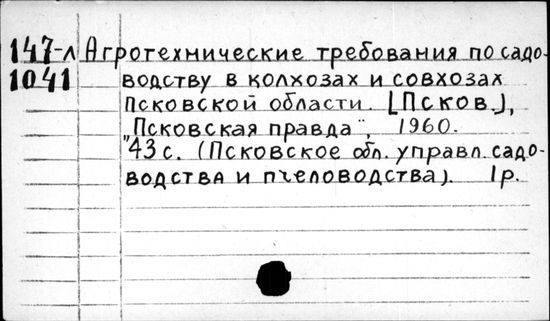 147-л Агротехнические требования по садо-
1041 водству в колхозах и совхозах
Псковской области. [Псков.],
"Псковская правда", 1960.
43 с. (Псковское обл. управл. садо-
водства и пчеловодства). 1 р.